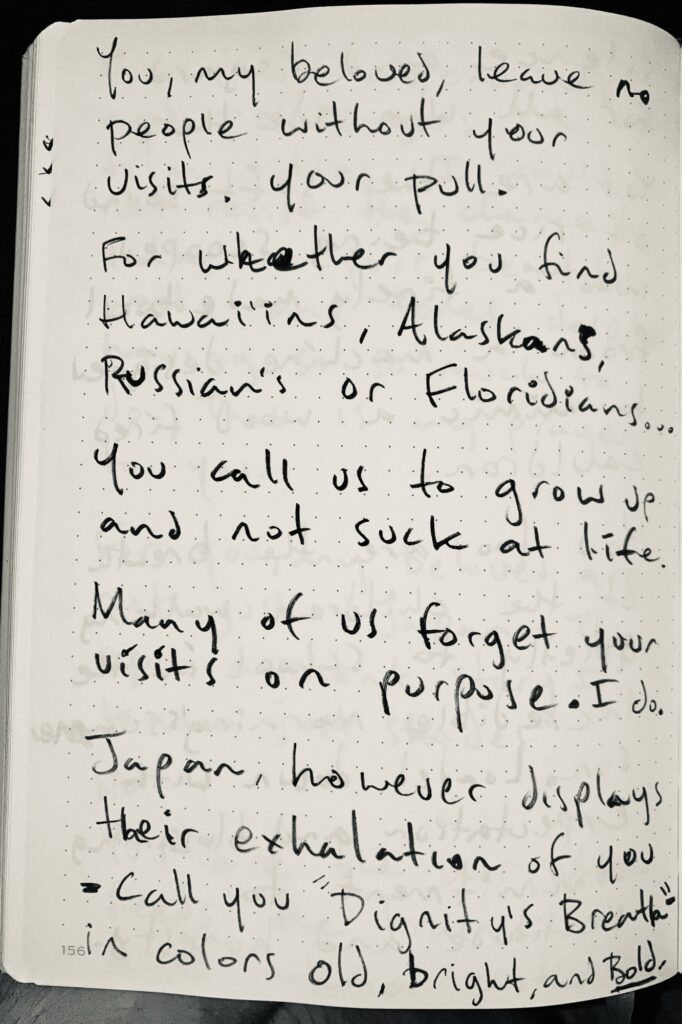 You, my beloved, leave no
people without your
visits. your pull.
For whether you find
Hawaiins, Alaskans,
Russian's or Floridians...
You call us to grow up
and not suck at life.
Many of us forget your
visits on purpose. I do.
Japan, however displays
their exhalation of you
- Call you "Dignity's Breath"
in colors old, bright, and Bold.
156